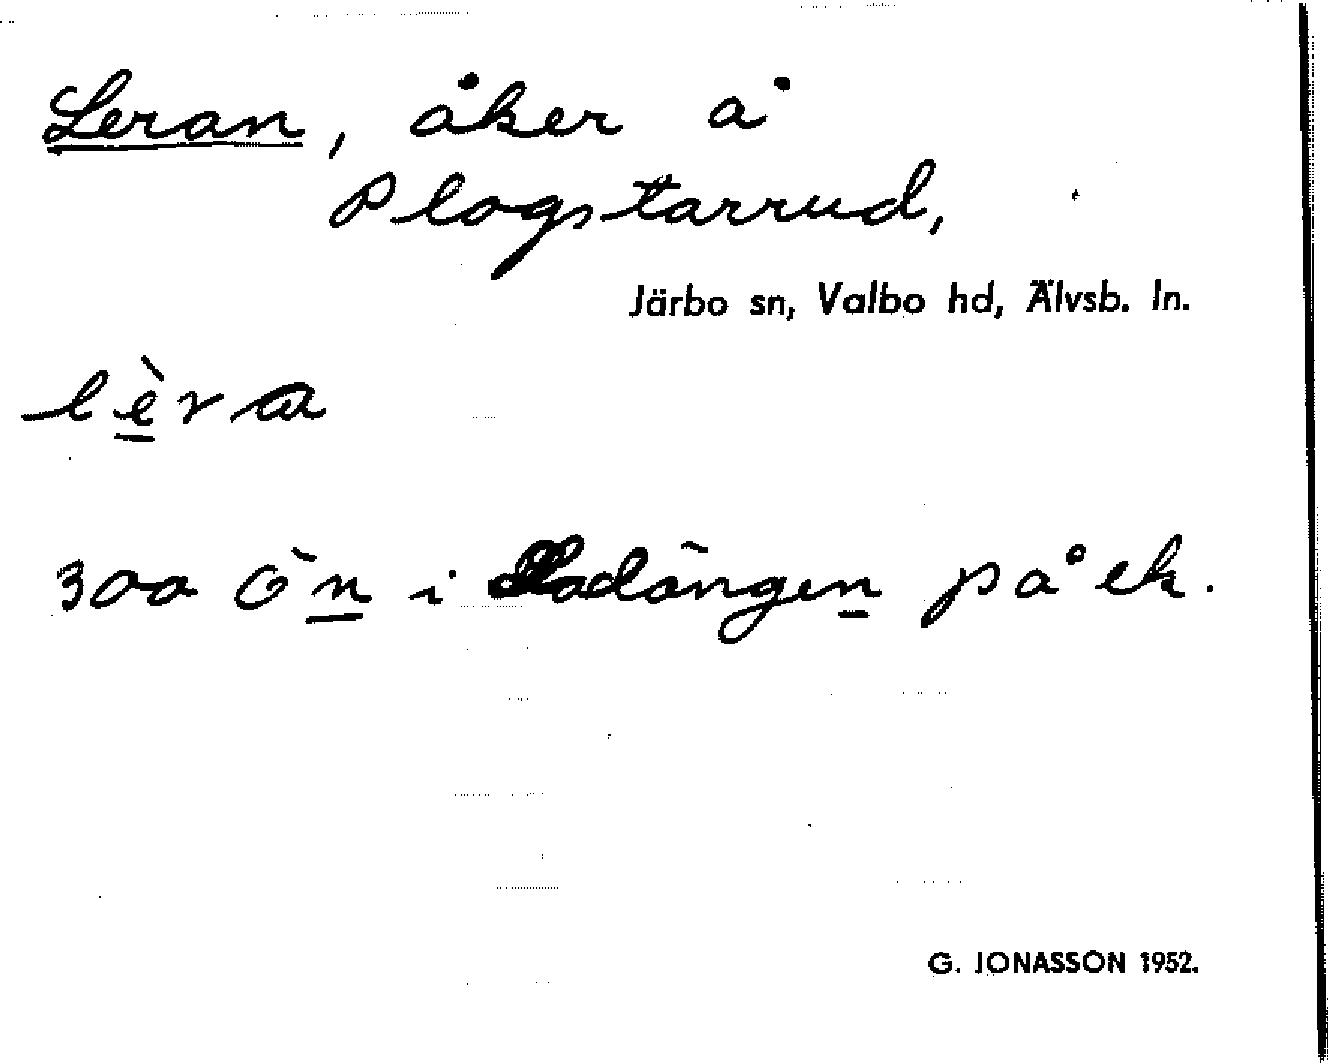 Leran, åker å
Plogstarrud,
Järbo sn, Valbo hd, Älvsb. ln.
lèra
300 i på ek.
G. JONASSON 1952.